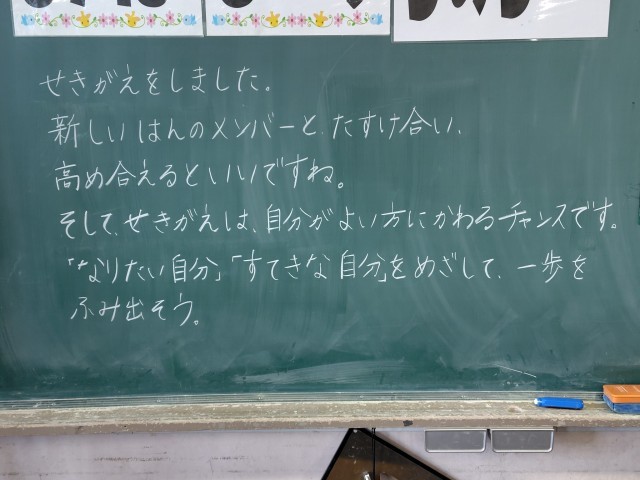 せきがえをしました。
新しいはんのメンバーと、たすけ合い、
高め合えるといいですね。
そして、せきがえは、自分がよい方にかわるチャンスです。
「なりたい自分」「すてきな自分」をめざして、一歩を
ふみ出そう。